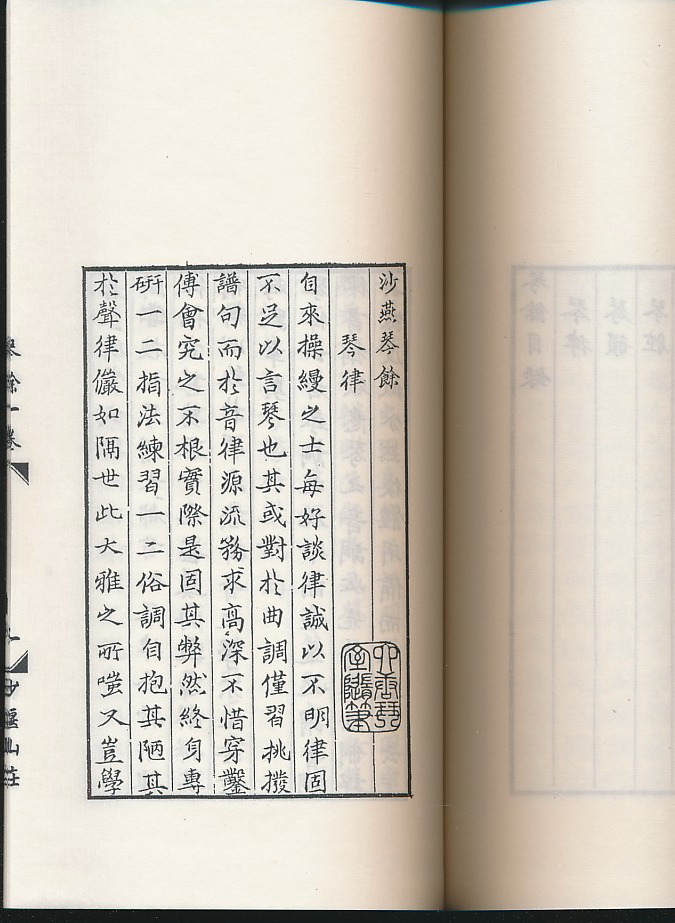 沙燕琴餘
琴律
自來操縵之士每好談律誠以不明律固
不足以言琴也其或對於曲調僅習挑撥
譜句而於音律源流務求高深不惜穿鑿
傅會究之不根實際是固其弊然終身專
研一二指法練習一二俗調自抱其陋其
於聲律儼如隔世此大雅之所嗤又豈學